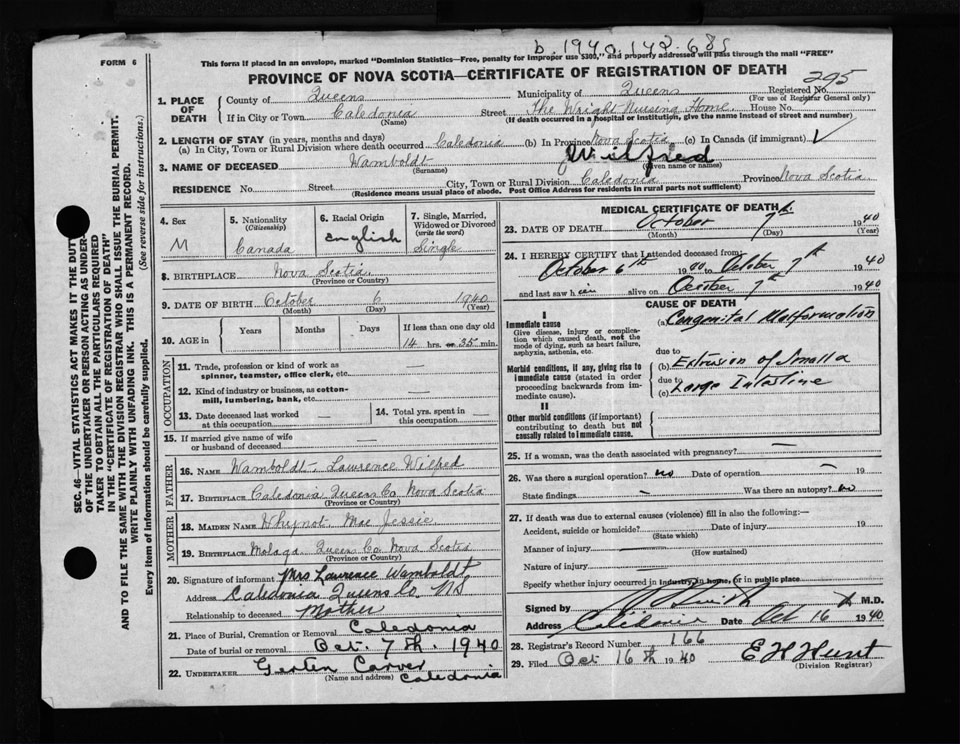 b. 1940. 142 685
FORM 6
This form if placed in an envelope, marked "Dominion Statistics—Free, penalty for improper use $300," and properly addressed will pass through the mail "FREE"
PROVINCE OF NOVA SCOTIA—CERTIFICATE OF REGISTRATION OF DEATH
295
1. PLACE OF DEATH
County of Queens Municipality of Queens Registered No.
(For use of Registrar General only)
If in City or Town Caledonia Street The Wright Nursing Home House No.
(Name) (If death occurred in a hospital or institution, give the name instead of street and number)
2. LENGTH OF STAY (in years, months and days)
(a) In City, Town or Rural Division where death occurred Caledonia (b) In Province Nova Scotia (c) In Canada (if immigrant)
3. NAME OF DECEASED Wamboldt Wilfred
(Surname) (Given name or names)
RESIDENCE No. Street City, Town or Rural Division Caledonia Province Nova Scotia
(Residence means usual place of abode. Post Office Address for residents in rural parts not sufficient)
4. Sex
M
5. Nationality
(Citizenship)
Canada
6. Racial Origin
English
7. Single, Married, Widowed or Divorced
(write the word)
Single
8. BIRTHPLACE Nova Scotia
(Province or Country)
9. DATE OF BIRTH October 6 1940
(Month) (Day) (Year)
10. AGE in
Years Months Days If less than one day old
14 hrs. or 35 min.
OCCUPATION
11. Trade, profession or kind of work as spinner, teamster, office clerk, etc. —
12. Kind of industry or business, as cotton-mill, lumbering, bank, etc. —
13. Date deceased last worked at this occupation —
14. Total yrs. spent in this occupation —
15. If married give name of wife or husband of deceased —
FATHER
16. NAME Wamboldt Lawrence Wilfred
17. BIRTHPLACE Caledonia Queens Co. Nova Scotia
(Province or Country)
MOTHER
18. MAIDEN NAME Whynot Mae Jessie
19. BIRTHPLACE Molega Queens Co. Nova Scotia
(Province or Country)
20. Signature of informant Mrs Lawrence Wamboldt
Address Caledonia Queens Co, NS
Relationship to deceased Mother
21. Place of Burial, Cremation or Removal Caledonia
Date of burial or removal Oct. 7th. 1940
22. UNDERTAKER Carver Caledonia
(Name and address)
MEDICAL CERTIFICATE OF DEATH
23. DATE OF DEATH October 7th 1940
(Month) (Day) (Year)
24. I HEREBY CERTIFY that I attended deceased from:
October 6th 1940 to October 7th 1940
and last saw h alive on October 7th 1940
CAUSE OF DEATH
I
Immediate cause
Give disease, injury or complication which caused death, not the mode of dying, such as heart failure, asphyxia, asthenia, etc.
(a) Congenital Malformation
due to
Morbid conditions, if any, giving rise to immediate cause (stated in order proceeding backwards from immediate cause).
(b) Extrusion of Small &
due to
(c) Large Intestine
II
Other morbid conditions (if important) contributing to death but not causally related to immediate cause.
25. If a woman, was the death associated with pregnancy? —
26. Was there a surgical operation? no Date of operation — 19
State findings — Was there an autopsy? no
27. If death was due to external causes (violence) fill in also the following:—
Accident, suicide or homicide? Date of injury 19
(State which)
Manner of injury
(How sustained)
Nature of injury
Specify whether injury occurred in industry, in home, or in public place
Signed by M.D.
Address Caledonia Date Oct 16 1940
28. Registrar's Record Number 166
29. Filed Oct 16th 1940 E H Hunt
(Division Registrar)
SEC. 46—VITAL STATISTICS ACT MAKES IT THE DUTY
OF THE UNDERTAKER OR PERSON ACTING AS UNDER-
TAKER TO OBTAIN ALL THE PARTICULARS REQUIRED
IN THE "CERTIFICATE OF REGISTRATION OF DEATH"
AND TO FILE THE SAME WITH THE DIVISION REGISTRAR WHO SHALL ISSUE THE BURIAL PERMIT.
WRITE PLAINLY WITH UNFADING INK. THIS IS A PERMANENT RECORD.
Every item of information should be carefully supplied. (See reverse side for instructions.)